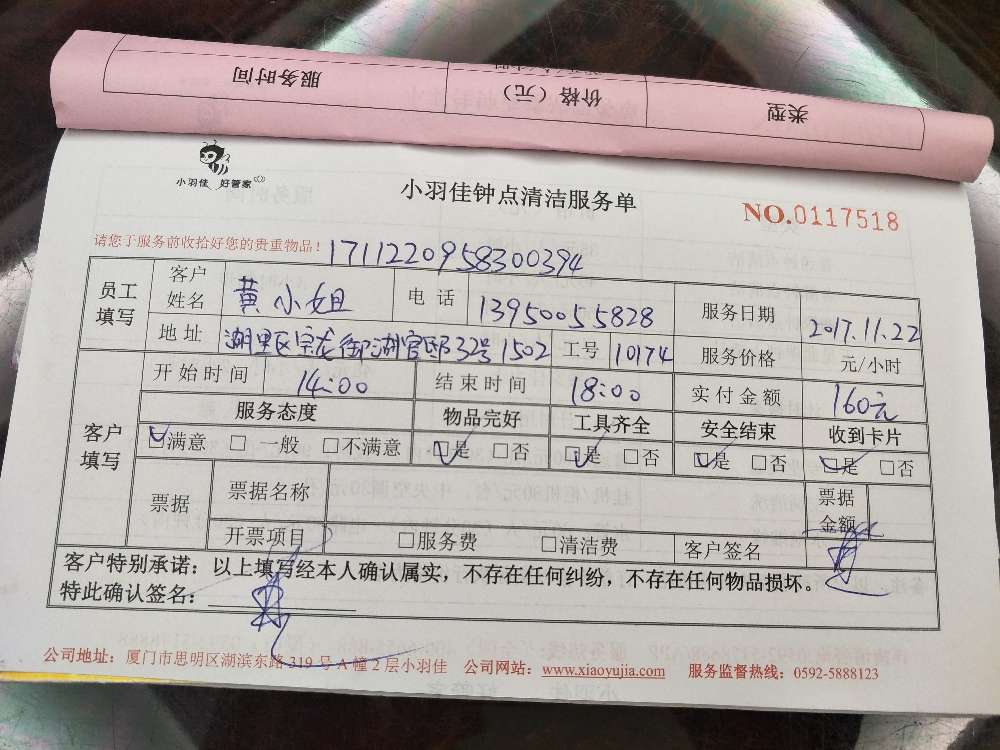 服务时间 价格（元） 类型
小羽佳 好管家
小羽佳钟点清洁服务单
NO.0117518
请您于服务前收拾好您的贵重物品！ 1711220958300394
员工填写 客户姓名 黄小姐 电话 13950055828 服务日期 2017.11.22
地址 湖里区宝龙御湖官邸32号1502 工号 10174 服务价格 元/小时
开始时间 14:00 结束时间 18:00 实付金额 160元
客户填写 服务态度 物品完好 工具齐全 安全结束 收到卡片
☑满意 □一般 □不满意 ☑是 □否 ☑是 □否 ☑是 □否 ☑是 □否
票据 票据名称 票据金额
开票项目 □服务费 □清洁费 客户签名
客户特别承诺：以上填写经本人确认属实，不存在任何纠纷，不存在任何物品损坏。
特此确认签名：
公司地址：厦门市思明区湖滨东路319号A幢2层小羽佳 公司网站：www.xiaoyujia.com 服务监督热线：0592-5888123